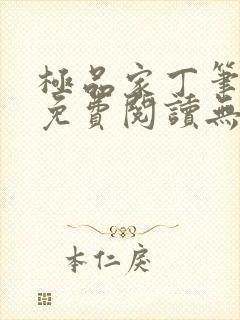 極品家丁筆
免費閱讀無
本仁戾